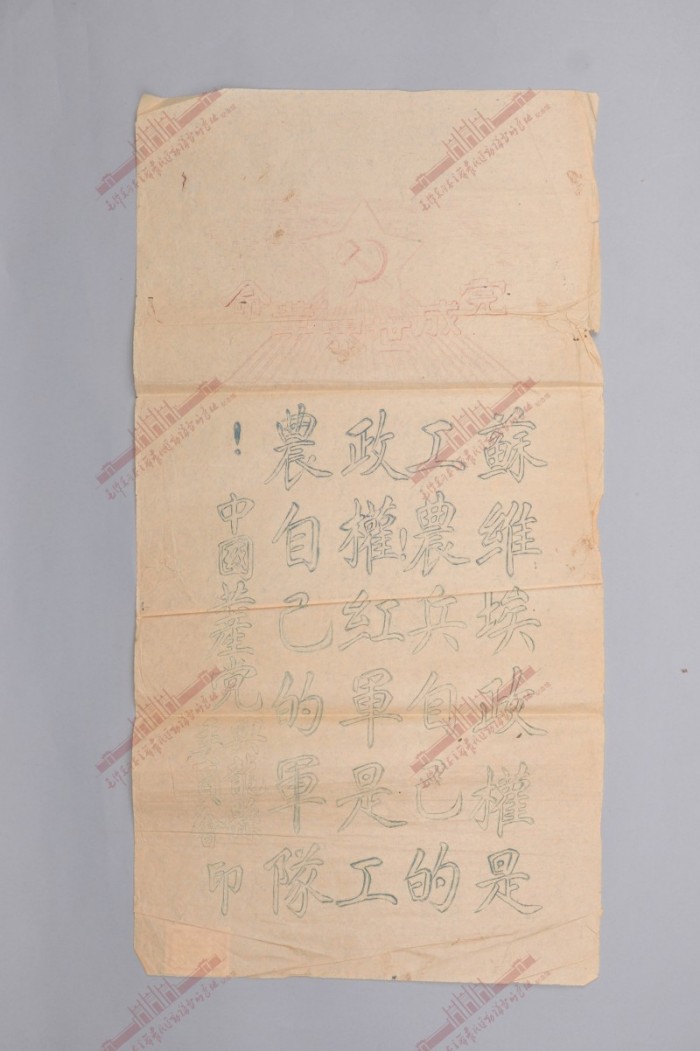 完成世界革命
蘇維埃政權是
工農兵自己的
政權!紅軍是工
農自己的軍隊
!
中國共產党
印